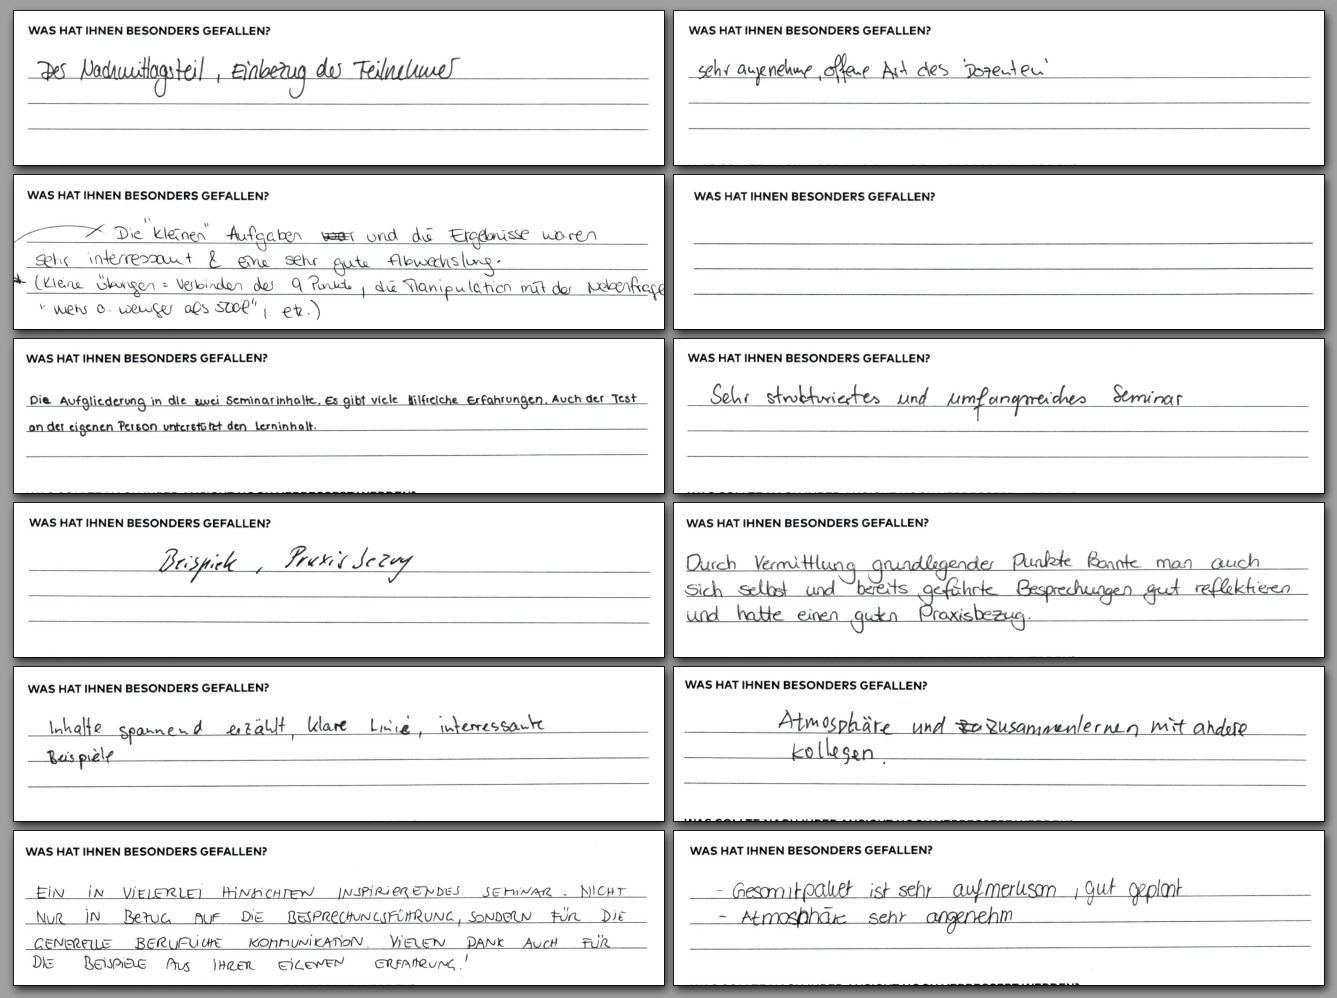 WAS HAT IHNEN BESONDERS GEFALLEN?
Der Nachmittagsteil, Einbezug der Teilnehmer
WAS HAT IHNEN BESONDERS GEFALLEN?
sehr angenehme, offene Art des Dozenten
WAS HAT IHNEN BESONDERS GEFALLEN?
Die "kleinen" Aufgaben und die Ergebnisse waren
sehr interressant & eine sehr gute Abwechslung.
* (Kleine Übungen = Verbinden der 9 Punkte, die Manipulation mit der Nebenfrage
"mehr o. weniger als 500€", etc.)
WAS HAT IHNEN BESONDERS GEFALLEN?
WAS HAT IHNEN BESONDERS GEFALLEN?
Die Aufgliederung in die zwei Seminarinhalte. Es gibt viele hilfreiche Erfahrungen. Auch der Test
an der eigenen Person unterstützt den Lerninhalt.
WAS HAT IHNEN BESONDERS GEFALLEN?
Sehr strukturiertes und umfangreiches Seminar
WAS HAT IHNEN BESONDERS GEFALLEN?
Beispiele, Praxisbezug
WAS HAT IHNEN BESONDERS GEFALLEN?
Durch Vermittlung grundlegender Punkte konnte man auch
sich selbst und bereits geführte Besprechungen gut reflektieren
und hatte einen guten Praxisbezug.
WAS HAT IHNEN BESONDERS GEFALLEN?
Inhalte spannend erzählt, klare Linie, interressante
Beispiele
WAS HAT IHNEN BESONDERS GEFALLEN?
Atmosphäre und zusammenlernen mit andere
kollegen.
WAS HAT IHNEN BESONDERS GEFALLEN?
EIN IN VIELERLEI HINSICHTEN INSPIRIERENDES SEMINAR. NICHT
NUR IN BEZUG AUF DIE BESPRECHUNGSFÜHRUNG, SONDERN FÜR DIE
GENERELLE BERUFLICHE KOMMUNIKATION. VIELEN DANK AUCH FÜR
DIE BEISPIELE AUS IHRER EIGENEN ERFAHRUNG!
WAS HAT IHNEN BESONDERS GEFALLEN?
- Gesamtpaket ist sehr aufmerksam, gut geplant
- Atmosphäre sehr angenehm